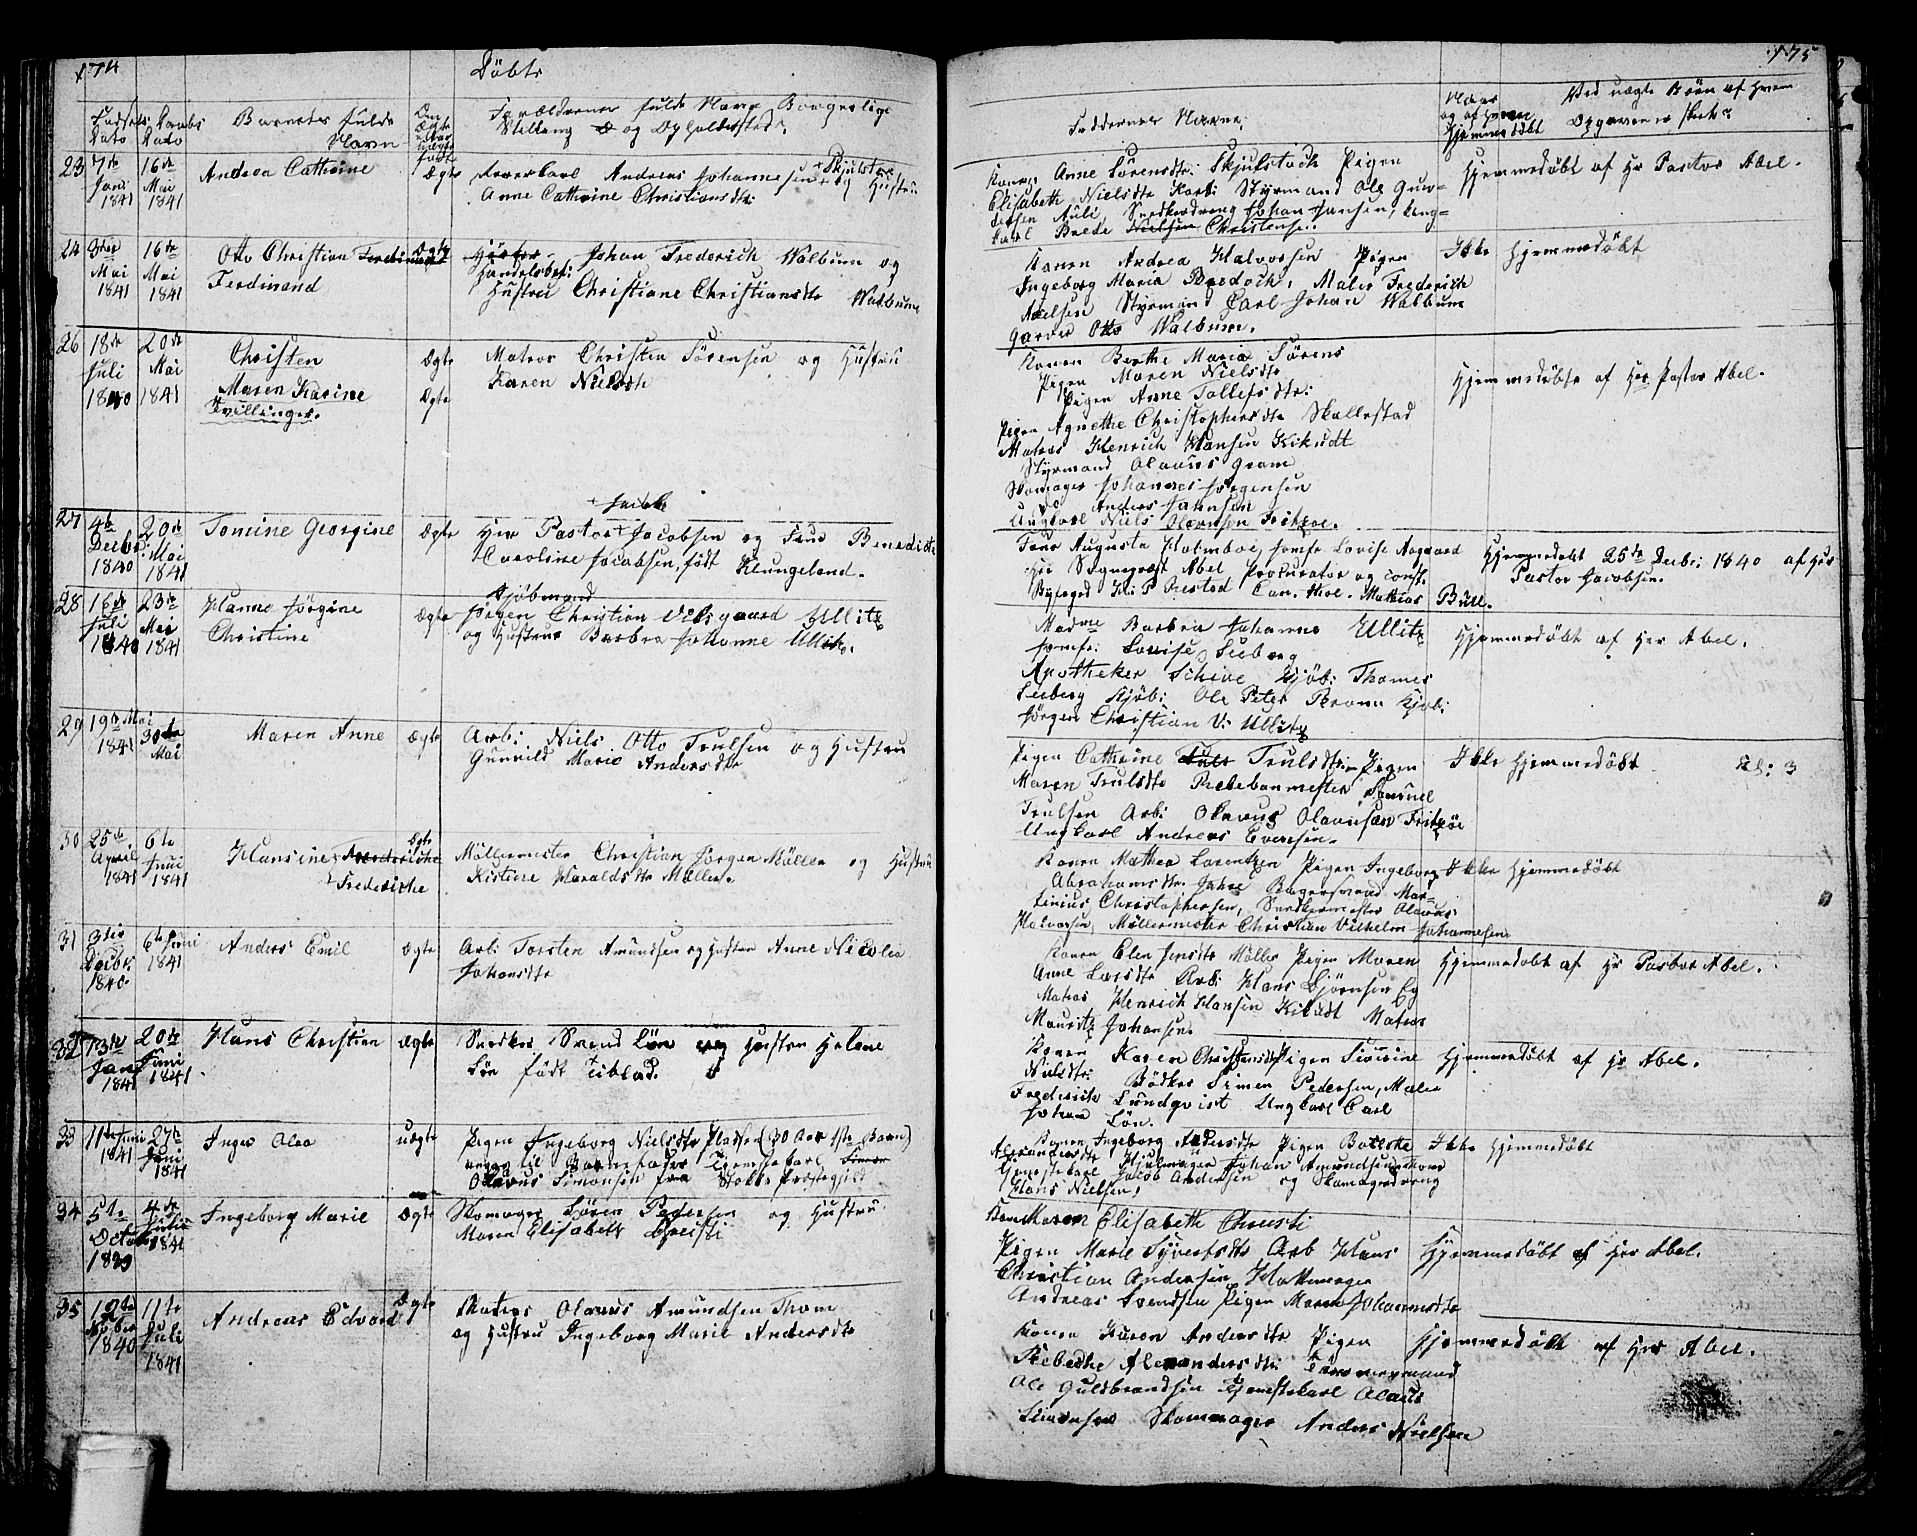 174
Døbte
Fødsels Dato
Daabs Dato
Barnets fulde Navn
Forældrenes fulde Navn Borgerlige
Stilling og Opholdssted
23 7de Jani 1841
16de Mai 1841
Andrea Catherine
Ægte
Andreas Johannesen + og Hustru
+ Skjulstoc
Anne Cathrine Christiansdtr.
24 3die Mai 1841
16de Mai 1841
Otto Christian Ferdinand
Ferdinand
Ægte
Johan Frederich Walbum og
Hustru Christiane Christiansdtr Walbum
26 18de Juli 1840
20de Mai 1841
Christen
Ægte
Maren Karine
Ægte
Tvillinger.
Matros Christen Sörensen og Hustru
Karen Nielsdtr
27 4de Decbr: 1840
20de Mai 1841
Tomine Georgine
Ægte
Herr Pastor + Jacobsen og Frue Benedicte
Caroline Jacobsen, født Klungeland.
28 16de Juli 1840
23de Mai 1841
Hanne Jørgine
Christine
Ægte
Kjøbmand
Jørgen Christian Ullitz
og Hustrue Barbra Johanne Ullitz.
29 19de Mai 1841
30de Mai
Maren Anne
Ægte
Arb: Niels Otto Trulsen og Hustru
Gunnild Marie Andersdtr
30 25de April 1841
6te Juni 1841
Hansine Frederiche
Frederiche
Ægte
Møllermester Christian Jørgen Møller og Hustru
Kistine Haraldsdtr Møller.
31 3die Decbr: 1840
6te Juni 1841
Anders Emil
Ægte
Arb: Torsten Amundsen og Hustru Anne Nicolea
Johansdtr
32 13de Jan 1841
20de Juni 1841
Hans Christian
Ægte
Snedker Svend Lön og Hustru Helene
Lön født Liblad.
33 11te Juni 1841
27de Juni 1841
Inger Olea
uægte
Pigen Ingeborg Nielsdtr Pladsen (30 Aar 1ste Barn)
Barnefader Tjenestekarl
Olavus Simonsen fra Stokke Præstegjeld
34 5te Octob 1839
4de Julii 1841
Ingeborg Marie
Ægte
Skomager Sören Pedersen og Hustru
Maren Elisabeth Christi
35 19de 1840
11te Juli 1841
Andreas Edvard
Ægte
Matros Olavus Amundsen Thom
og Hustru Ingeborg Marie Andersdtr
175
Faddernes Navne
Naar og af hvem Hjemmedøbt
Ved uægte Børn af hvem
Opgaven er skeet?
Konen Anne Sörensdtr: Skjulstoch Pigen
Elisabeth Nielsdtr Styrmand Ole Gun-
dersen Auli, Snedkerdreng Johan Jansen, Ung-
karl Brede Nielsen Christense.
Hjemmedøbt af Hr Pastor Abel.
Konen Andrea Halvorsen Pigen
Ingeborg Maria Maler Frederich
Axelsen Styrmand Carl Johan Walbum
Garver Otto Walbum.
Ikke Hjemmedøbt
Konen Berthe Maria Sörens
Pigen Maren Nielsdtr
Pigen Anne Tollefsdtr:
Pigen Agnethe Christophersdtr Skallestad
Matros Henrich Hansen Kikudt
Styrmand Olavus Gram
Skomager Johannes Jørgensen
Anders Jahnsen
Ungkarl Niels Olavesen Fritzøe.
Hjemmedøbte af Her Pastor Abel.
Frue Augusta Holmboe, Jomfr Lovise Aagaard
Hr Sognepræst Abel Procurator og const.
Byfoged H: P Restad Can. theol. Mathias Bull.
Hjemmedøbt 25de Decbr: 1840 af Her
Pastor Jacobsen.
Madme Barbra Johanne Ullitz
Jomfr: Lovise Seeberg
Apotheker Schive Kjøb: Thomes
Seeberg Kjøb: Ole Peter Bronn Kjøb:
Jørgen Christian V: Ullitz
Hjemmedøbt af Her Abel.
Pigen Cathrine Trulsdtr: Pigen
Maren Trulsdtr Rebebanmester Samuel
Trulsen Arb: Olavus Olavusen Fritzøe
Ungkarl Andreas Evensen.
Ikke Hjemmedøbt
Konen Mathea Lorentzen Pigen Ingeborg
Abrahamsdtr. Jahre Bagersvend Mar-
tinius Christophersen, Snedkermester Olavus
Halvorsen, Møllermester Christian Vilhelm Johannesen
Ikke Hjemmedøbt
Konen Elen Jensdtr Møller Pigen Maren
Anne Larsdtr Arb: Hans Bjørnsen Eg
Matros Henrich Hansen Kikudt Matros
Mauritz Johansen.
Hjemmedøbt af Hr Pastor Abel.
Konen Karen Christensdtr Pigen Sevrine
Nielsdtr: Bødker Simen Pedersen, Maler
Frederich Lundqvist Ungkarl Carl
Johan Lön.
Hjemmedøbt af Hr Abel.
Konen Ingeborg Andersdtr Pigen
Alexandersdtr Johan Amundsen
Tjenestekarl Jacob Andersen og Skomagerdreng
Hans Nielsen.
Ikke Hjemmedøbt
Konen Maren Elisabeth Christi
Pigen Marie Syvertsdtr Arb Hans
Christian Andersen Hattemager
Andreas Svendsen Pigen Maren Johannesdtr
Hjemmedøbt af Her Abel.
Konen Karen Andersdtr Pigen
Rebecke Alexandersdtr: Tømmermand
Ole Guldbrandsen Tjenestekarl Olavus
Simonsen Skommager Anders Nielsen
Hjemmedøbt af Her Abel.